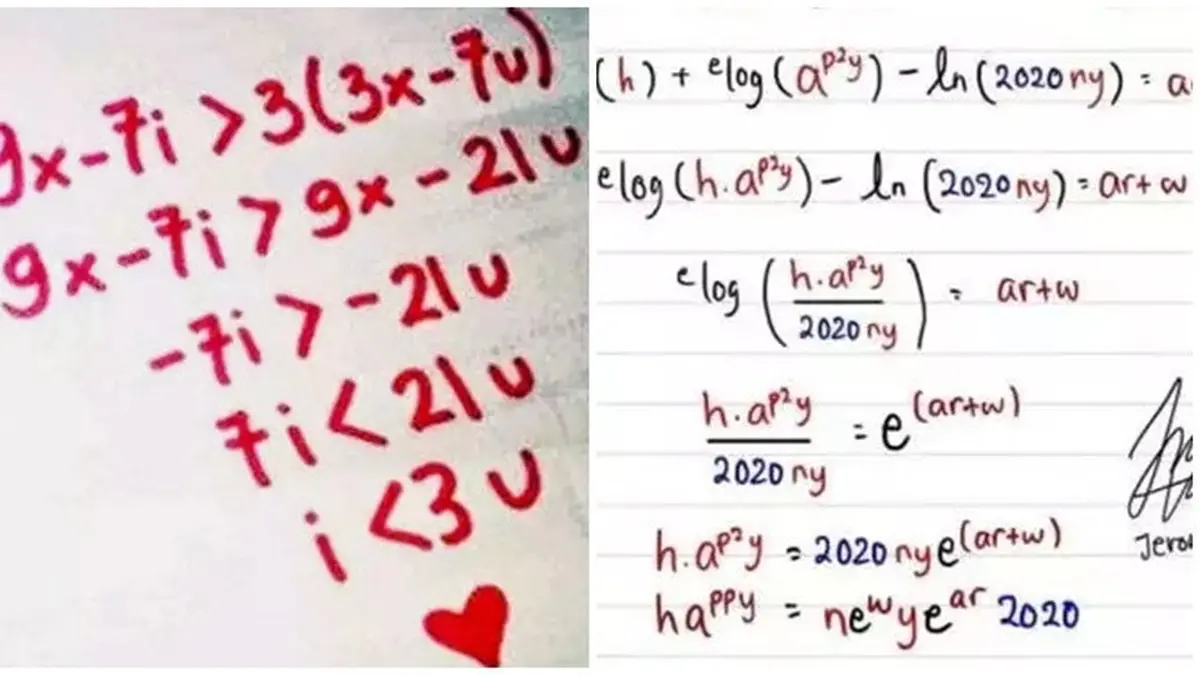 9x-7i > 3(3x-7u)
9x-7i > 9x-21u
-7i > -21u
7i < 21u
i <3 u
(h) + ᵉlog(aᵖ²ʸ) - ln(2020ny) = a
elog(h.aᵖ²ʸ) - ln(2020ny) = ar+w
ᵉlog(h.aᵖ²ʸ/2020ny) = ar+w
h.aᵖ²ʸ/2020ny = e^(ar+w)
h.aᵖ²ʸ = 2020nye^(ar+w)
haᵖᵖʸ = neʷyeᵃʳ 2020